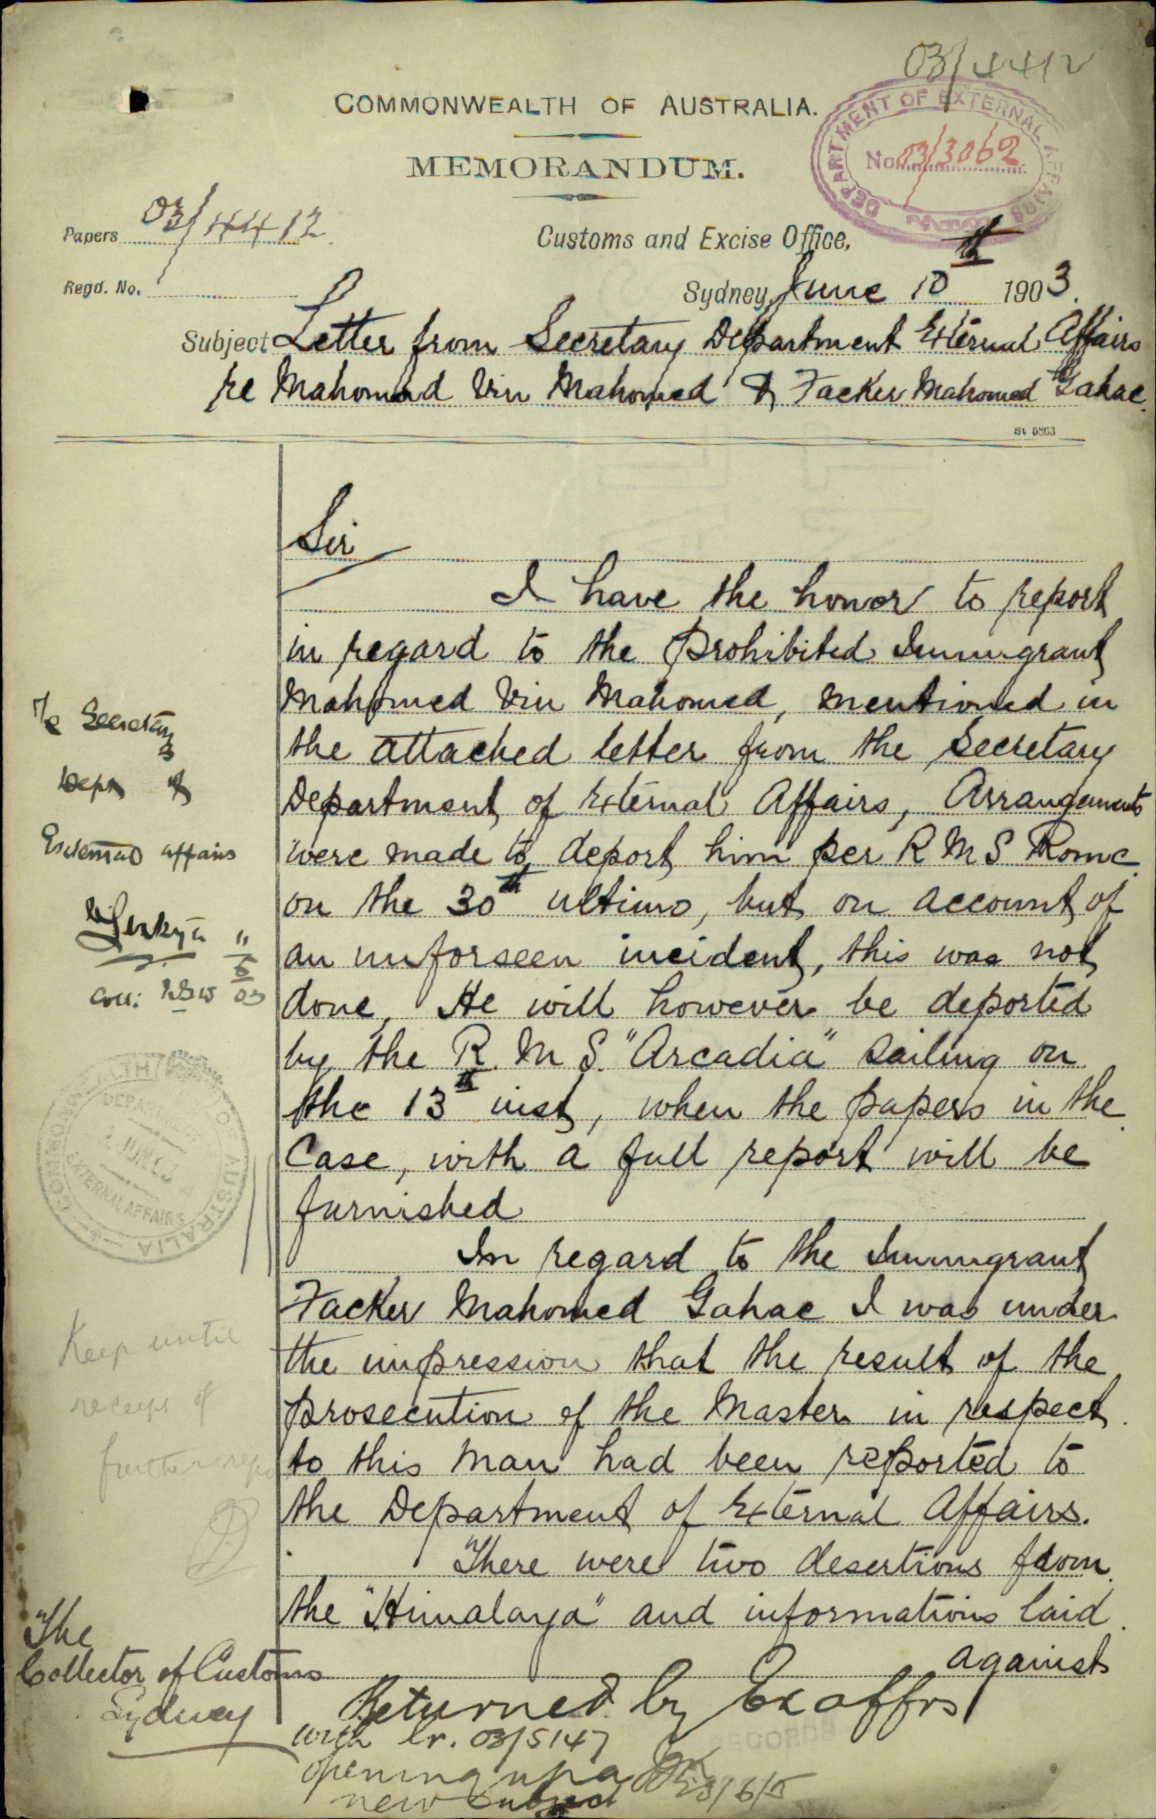 03/4412
COMMONWEALTH OF AUSTRALIA.
MEMORANDUM.
DEPARTMENT OF EXTERNAL AFFAIRS
No. 03/3062
Papers 03/4412
Regd. No.
Customs and Excise Office,
Sydney, June 10th 1903.
Subject Letter from Secretary Department External Affairs
re Mahomed Vin Mahomed & Facker Mahomed Gahae.
Sir
I have the honor to report
in regard to the prohibited Immigrant
Mahomed Vin Mahomed, mentioned in
the attached letter from the Secretary
Department of External Affairs, Arrangements
were made to deport him per R M S Rome
on the 30th ultimo, but on account of
an unforseen incident, this was not
done, He will however be deported
by the R. M S. "Arcadia" sailing on
the 13th inst, when the papers in the
Case, with a full report will be
furnished
In regard to the Immigrant
Facker Mahomed Gahae I was under
the impression that the result of the
prosecution of the Master in respect
to this man had been reported to
the Department of External Affairs.
There were two desertions from
the "Himalaya" and informations laid
against
The Secretary
Dept of
External affairs
11/6/03
COMMONWEALTH OF AUSTRALIA
EXTERNAL AFFAIRS
Keep until
receipt of
further
The
Collector of Customs
Sydney
Returned by Ex affrs
with lr. 03/5147
opening up a
new subject
23/6/5